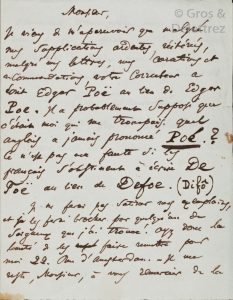 © Gros & Delettrez
Monsieur,
Je viens de m'apercevoir que malgré
mes supplications ardentes, réitérées,
malgré mes lettres, mes corrections et
recommandations, votre Correcteur a
écrit Edgar Poë au lieu de Edgar
Poe. Il a probablement supposé que
c'était moi qui me trompais. Quel
anglais a jamais prononcé Poë ?
Ce n'est pas une faute si les
français s'obstinent à écrire De
Foë au lieu de Defoe. (Difô)
Je ne ferai pas satiner mes exemplaires,
et je les ferai brocher par quelqu'un de
soigneux que j'ai trouvé. Ayez donc la
bonté de les faire remettre pour
moi 22. rue d'amsterdam. – Je me
reste, Monsieur, à vous remercier de la